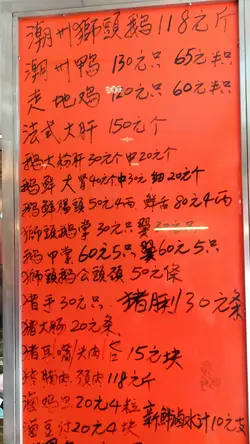 潮州獅頭鹅118元斤
潮州鸭 130元只 65元半只
走地鸡 120元只 60元半只
法式大肝 150元个
鹅大粉肝30元个 中20元个
鹅鲜 大胃40元个中30元 细20元个
鹅鲜腸头50元4両 鲜舌80元4両
獅頭鹅掌30元只 翼
鹅甲掌60元5只 翼60元5只
獅頭鹅公頭頚50元条
猪手30元只 猪脷30元条
猪大肠20元条
猪耳嘴头肉 15元块
猪胸肉 頚肉118元斤
卤鸡旦20元4粒 新鲜鹵水汁10元
卤豆付20元4块